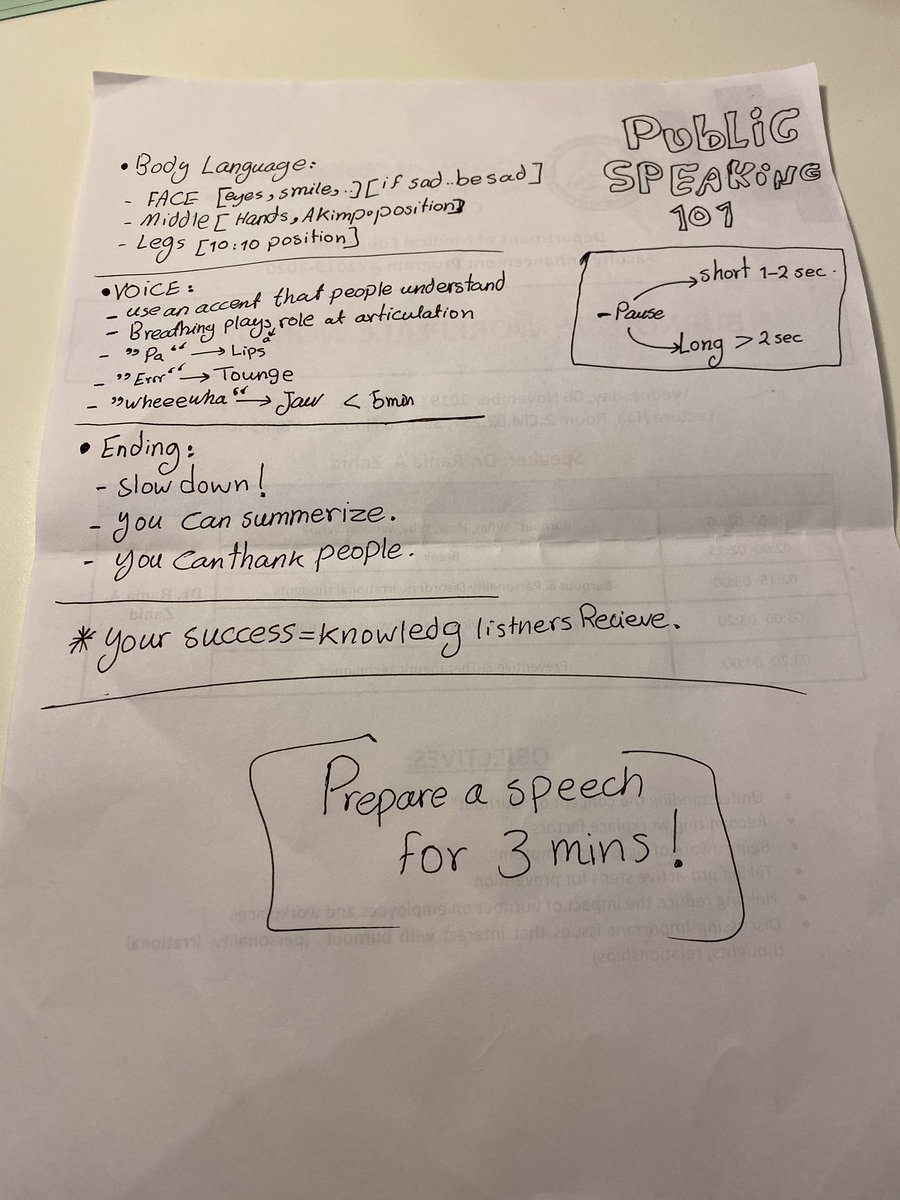 PUBLIC
SPEAKING
101
• Body Language:
- FACE [eyes, smile, ..] [if sad..be sad]
- Middle [Hands, Akimpo position]
- Legs [10:10 position]
- Pause
short 1-2 sec.
Long > 2 sec
• VOICE:
- use an accent that people understand
- Breathing plays a role at articulation
- "Pa" → Lips
- "Errr" → Tounge
- "wheeewha" → Jaw < 5min
• Ending:
- slow down!
- you can summerize.
- you can thank people.
* your success = knowledg listners Recieve.
Prepare a speech
for 3 mins!
OBJECTIVES: